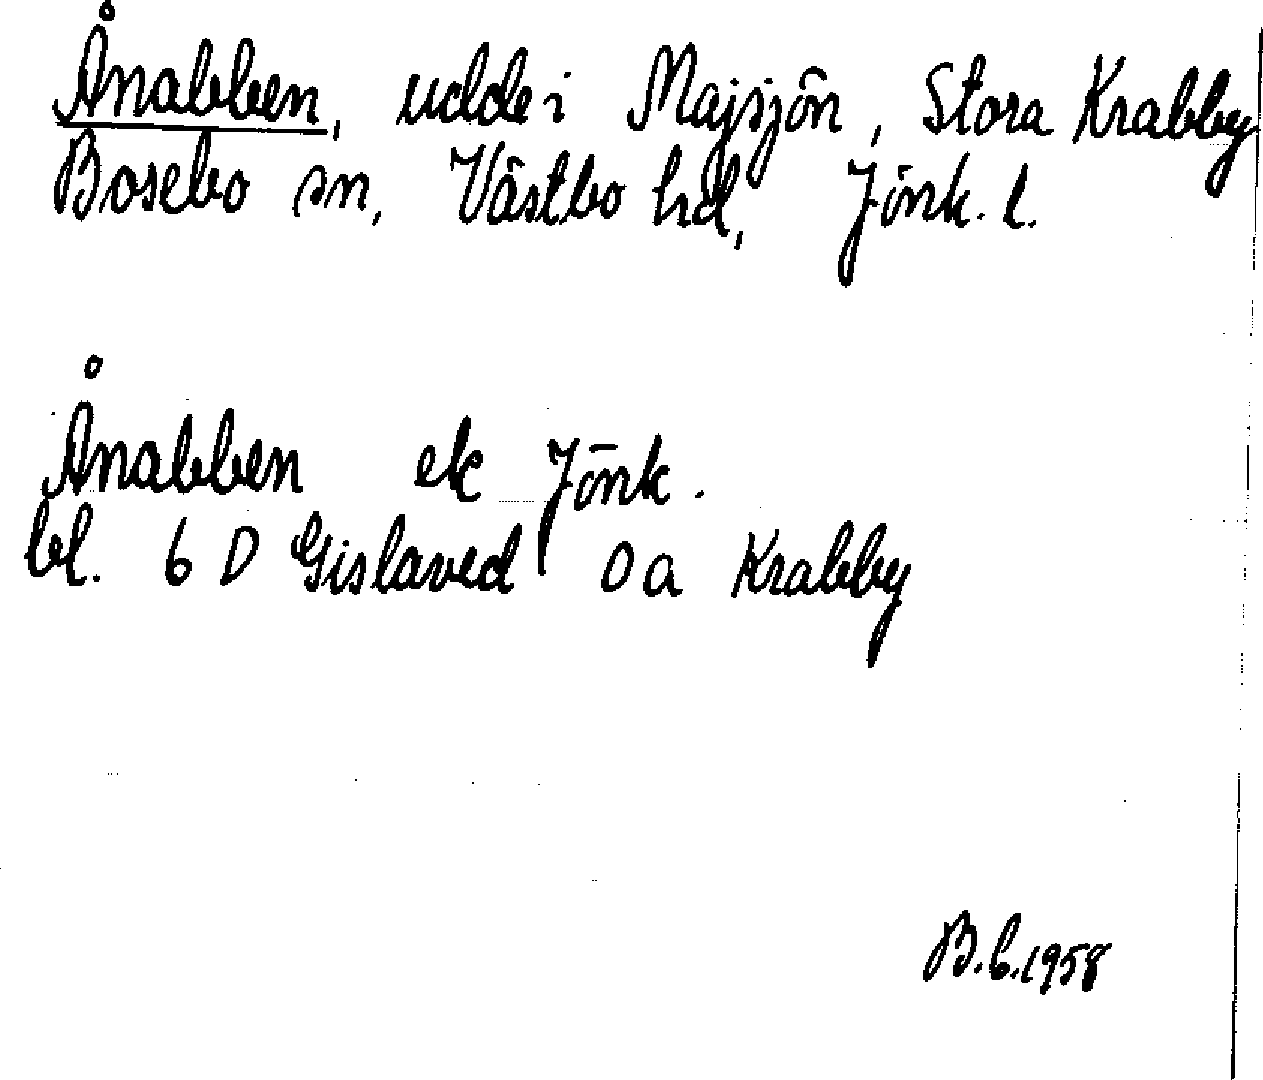 Ånabben, udde i Majsjön, Stora Krabby
Bosebo sn, Västbo hd, Jönk. l.
Ånabben ek Jönk.
bl. 6 D Gislaved 0a Krabby
B.6.1958